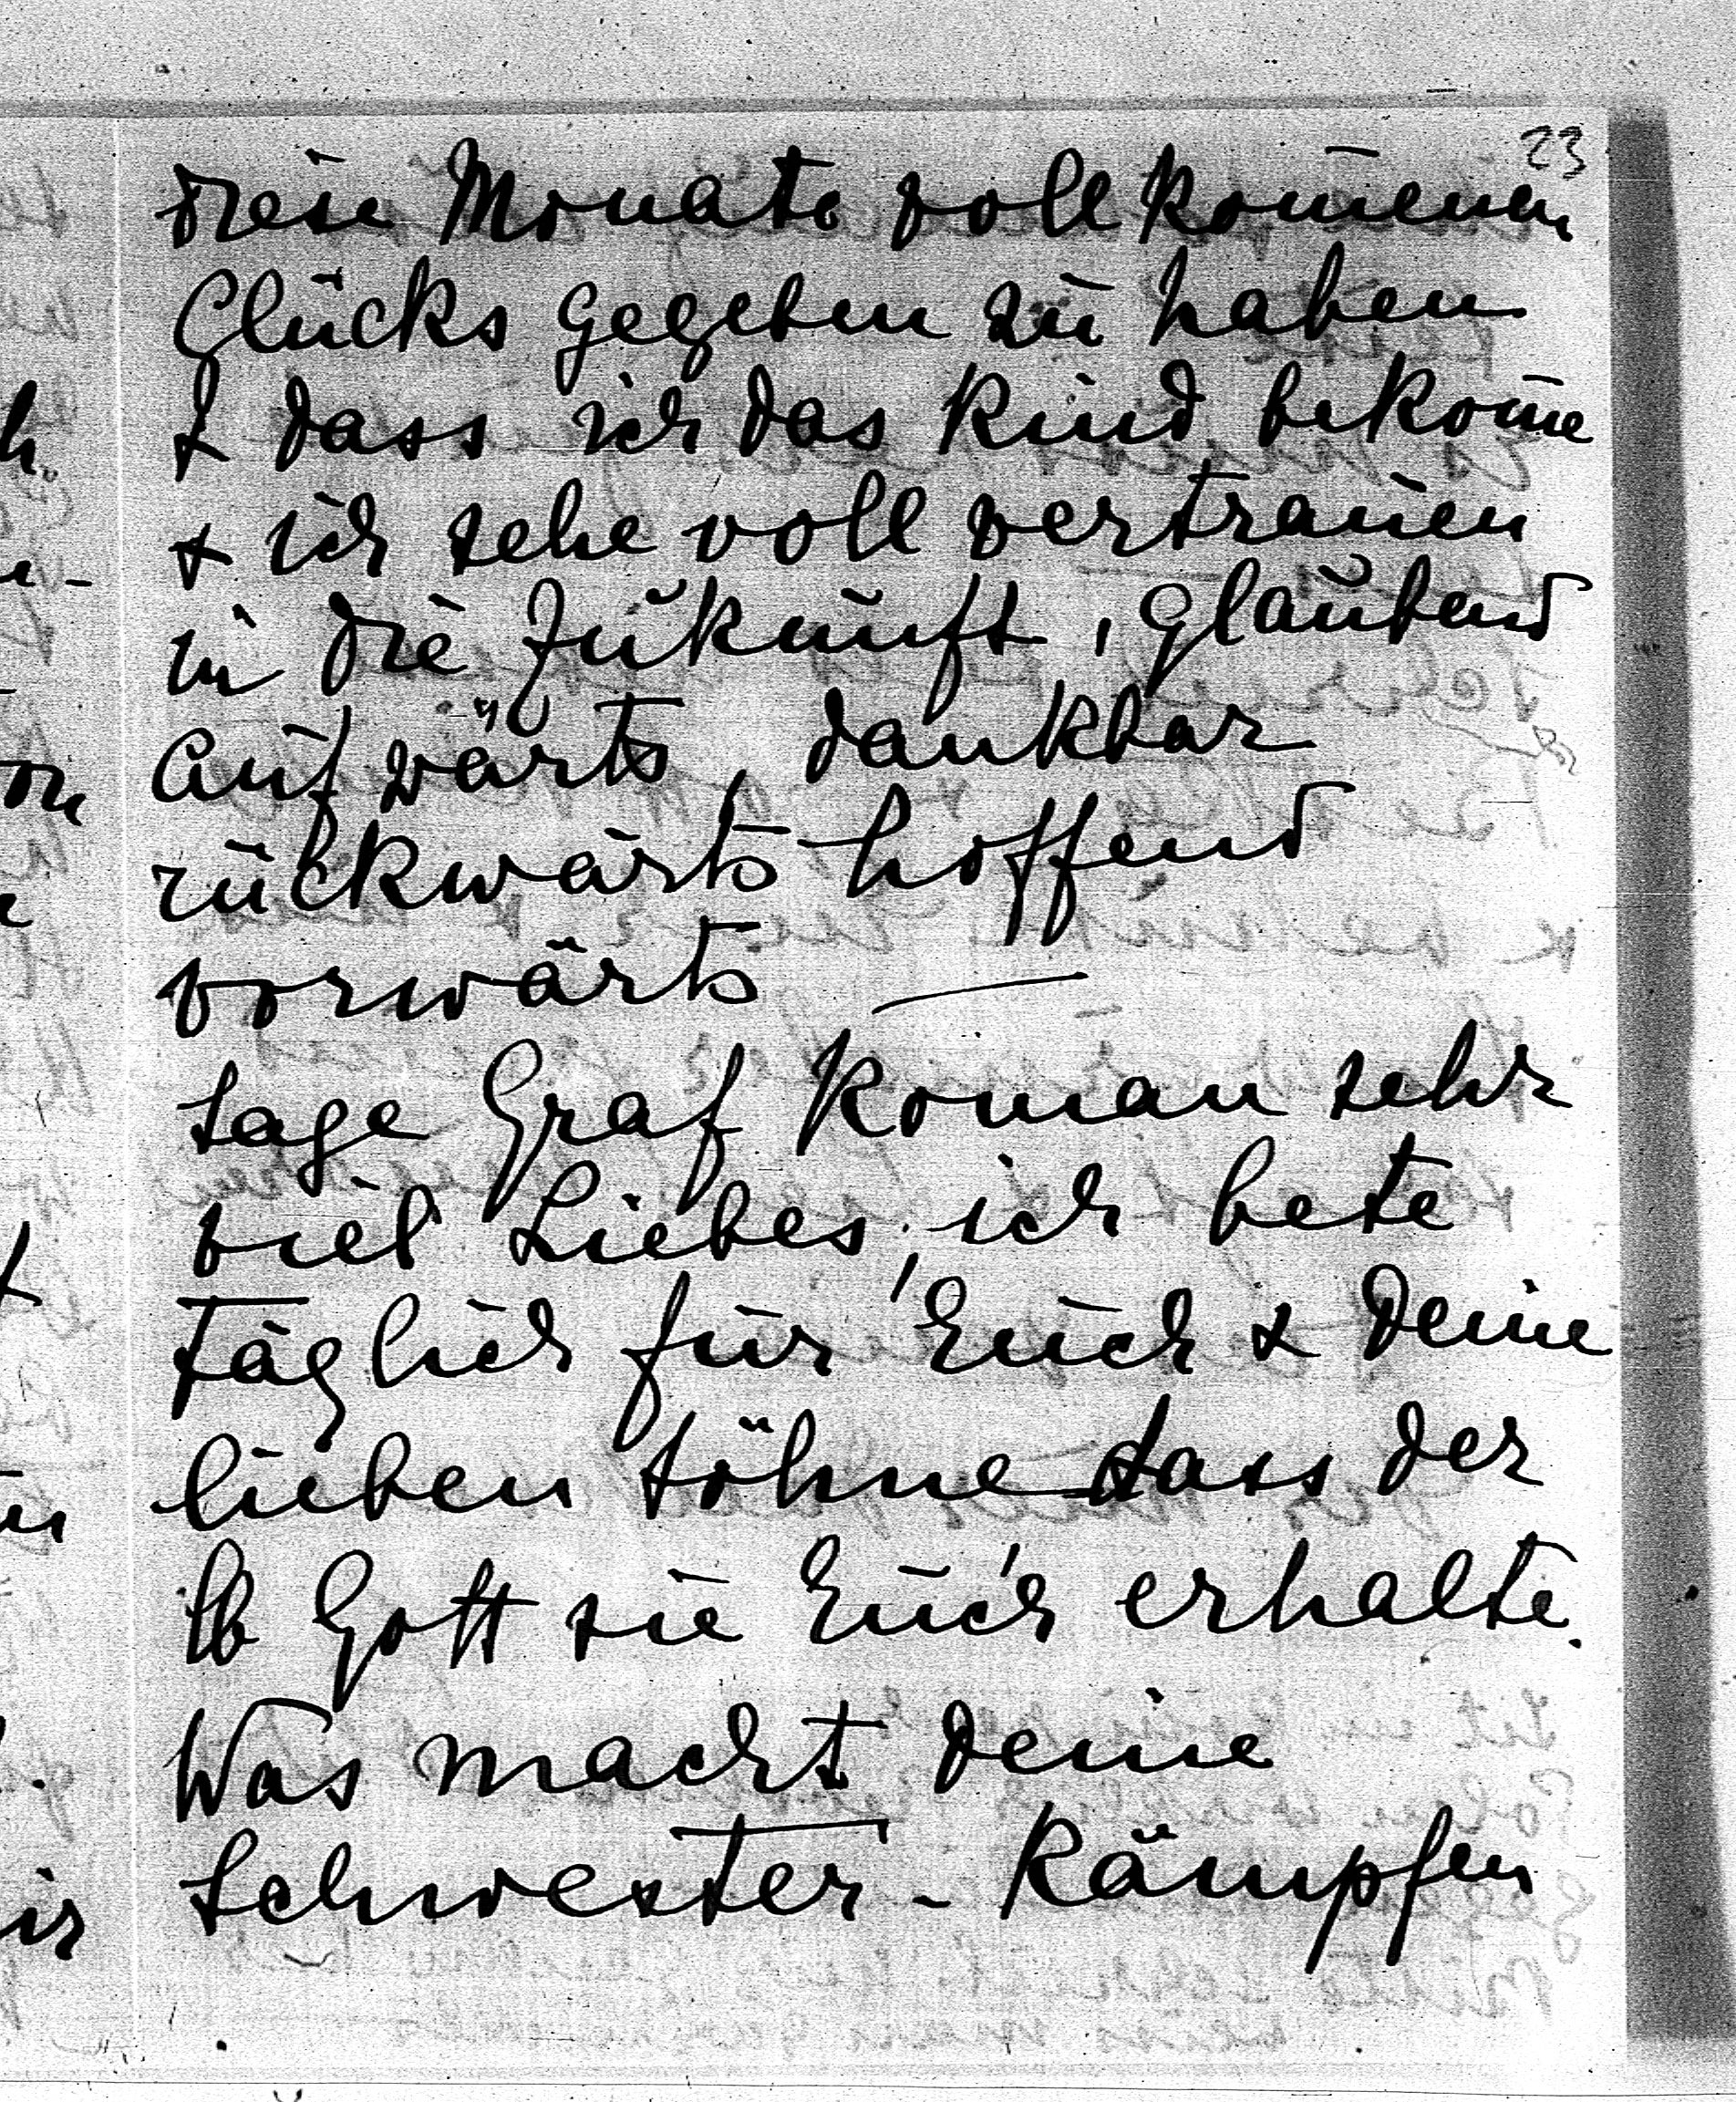 23
diese Monate vollkom̄enen
Glücks gegeben zu haben
& dass ich das Kind bekom̄e
& ich sehe voll vertrauen
in die Zukunft, glaubend
aufwärts, dankbar
rückwärts, hoffend
vorwärts —
Sage Graf Roman sehr
viel Liebes, ich bete
täglich für Euch & Deine
lieben Söhne dass der
lb Gott sie Euch erhalte.
Was macht Deine
Schwester - Kämpfen